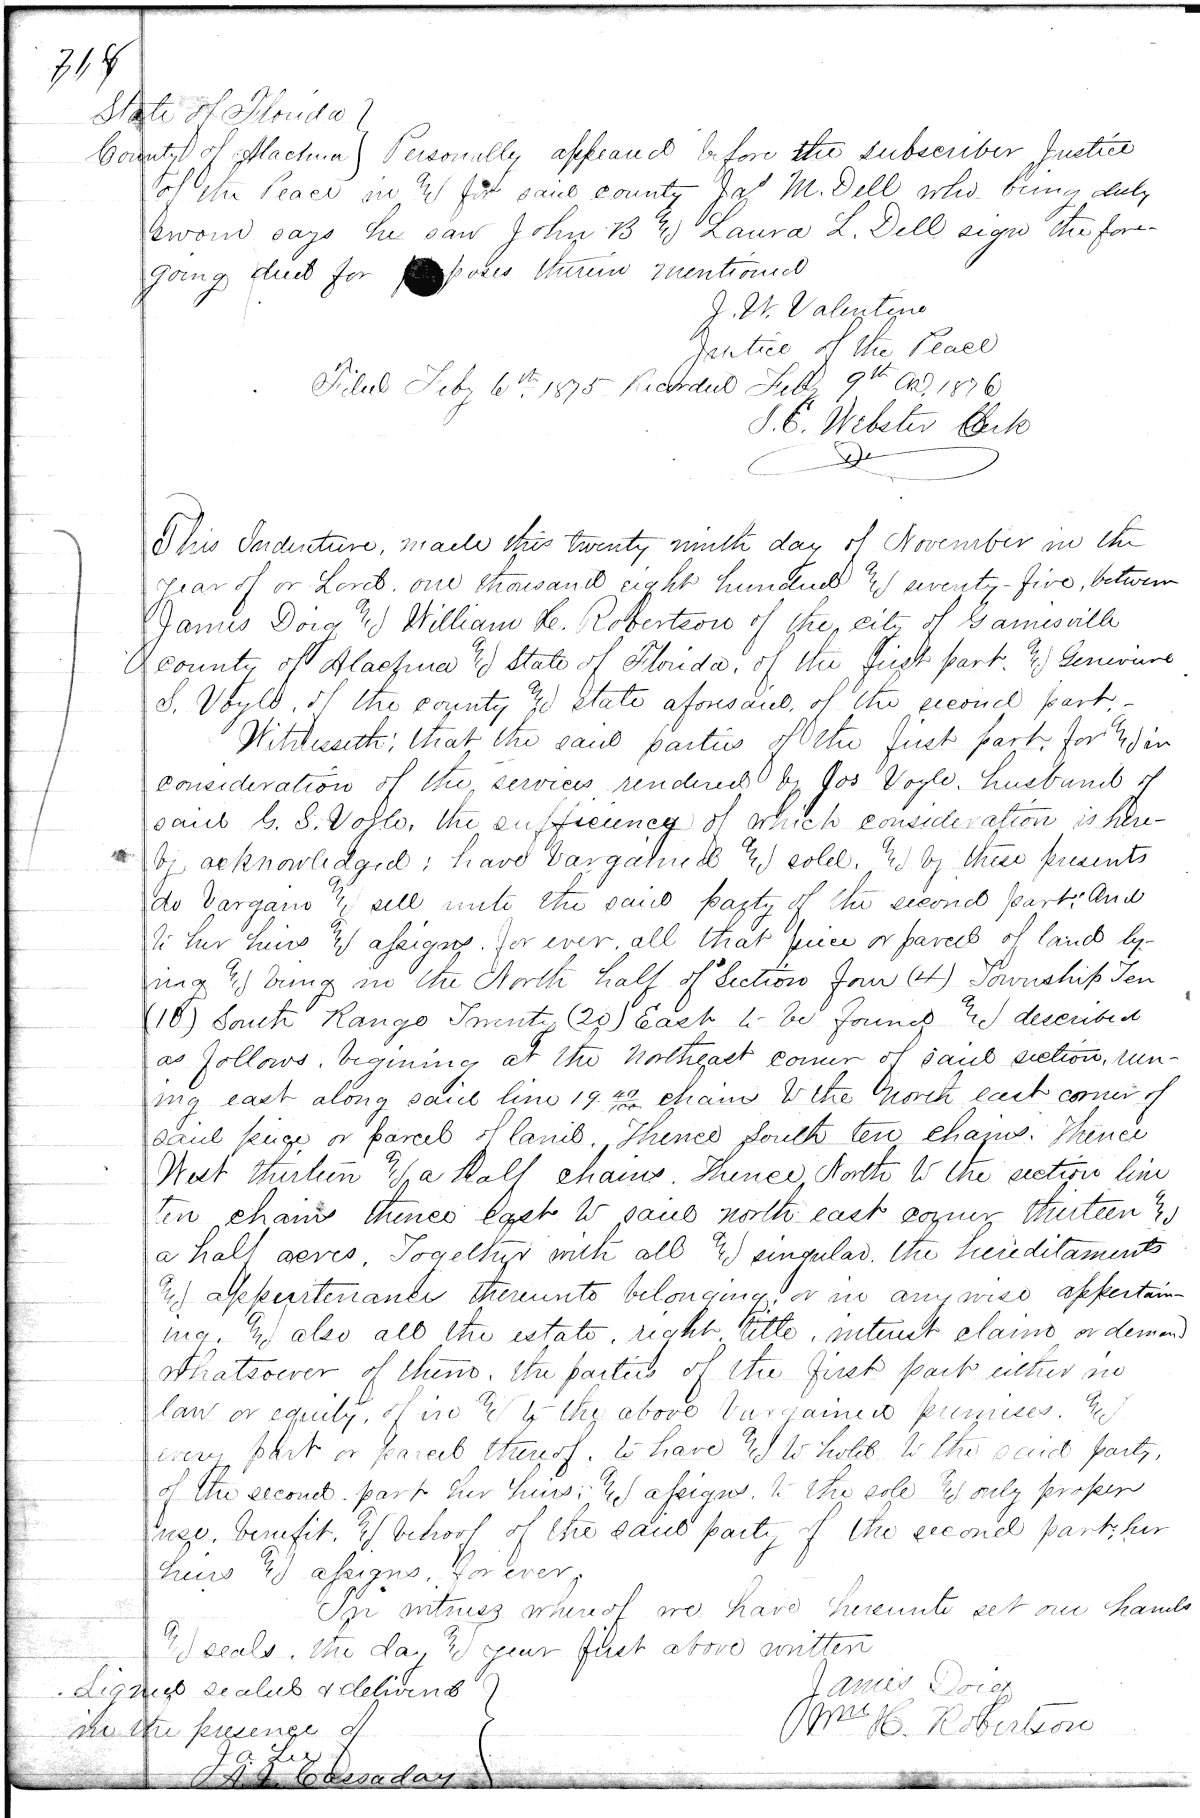 718
State of Florida }
County of Alachua } Personally appeared before the subscriber Justice
of the Peace in & for said county Jas M. Dell who being duly
sworn says he saw John B & Laura L. Dell sign the fore-
going deed for poses therein mentioned
J. W. Valentine
Justice of the Peace
Filed Feby 6th 1875 Recorded Feby 9th AD, 1876
J. C. Webster Clerk
This Indenture, made this twenty ninth day of November in the
year of or Lord. one thousand eight hundred & seventy-five, between
James Doig & William H. Robertson of the city of Gainesville
county of Alachua & State of Florida, of the first part. & Genevieve
S. Voyle, of the county & state aforesaid, of the second part. -
Witnesseth; that the said parties of the first part, for & in
consideration of the services rendered by Jos Voyle. husband of
said G. S. Voyle, the sufficiency of which consideration is here-
by acknowledged; have bargained & sold. & by these presents
do bargain & sell unto the said party of the second part, And
to her heirs & assigns. for ever, all that piece or parcel of land ly-
ing & being in the North half of Section four (4) Township Ten
(10) South Range Twenty (20) East to be found & described
as follows. begining at the northeast corner of said section, run-
ing east along said line 19 40/100 chain to the north east corner of
said peice or parcel of land. Thence South ten chains. Thence
West thirteen & a half chains. Thence North to the section line
ten chains thence east to said north east corner thirteen &
a half acres. Together with all & singular. the hereditaments
& appurtenance thereunto belonging, or in anywise appertain-
ing. & also all the estate, right, title, interest claim or demand
whatsoever of them. the parties of the first part either in
law or equity, of in & to the above bargained premises. &
every part or parcel thereof. to have & to hold to the said party,
of the second part her heirs; & assigns. to the sole & only proper
use, benefit. & behoof of the said party of the second part, her
heirs & assigns. for ever.
In witness whereof we have hereunto set our hands
& seals. the day & year first above written
Signed sealed & delivered }
in the presence of
James Doig
Wm H. Robertson
Cassaday